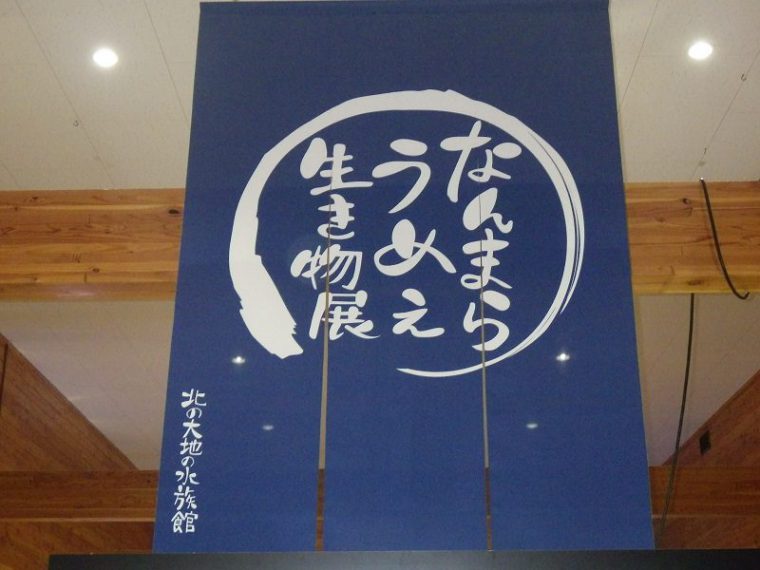 なんまら
うめえ
生き物展
北の大地の水族館